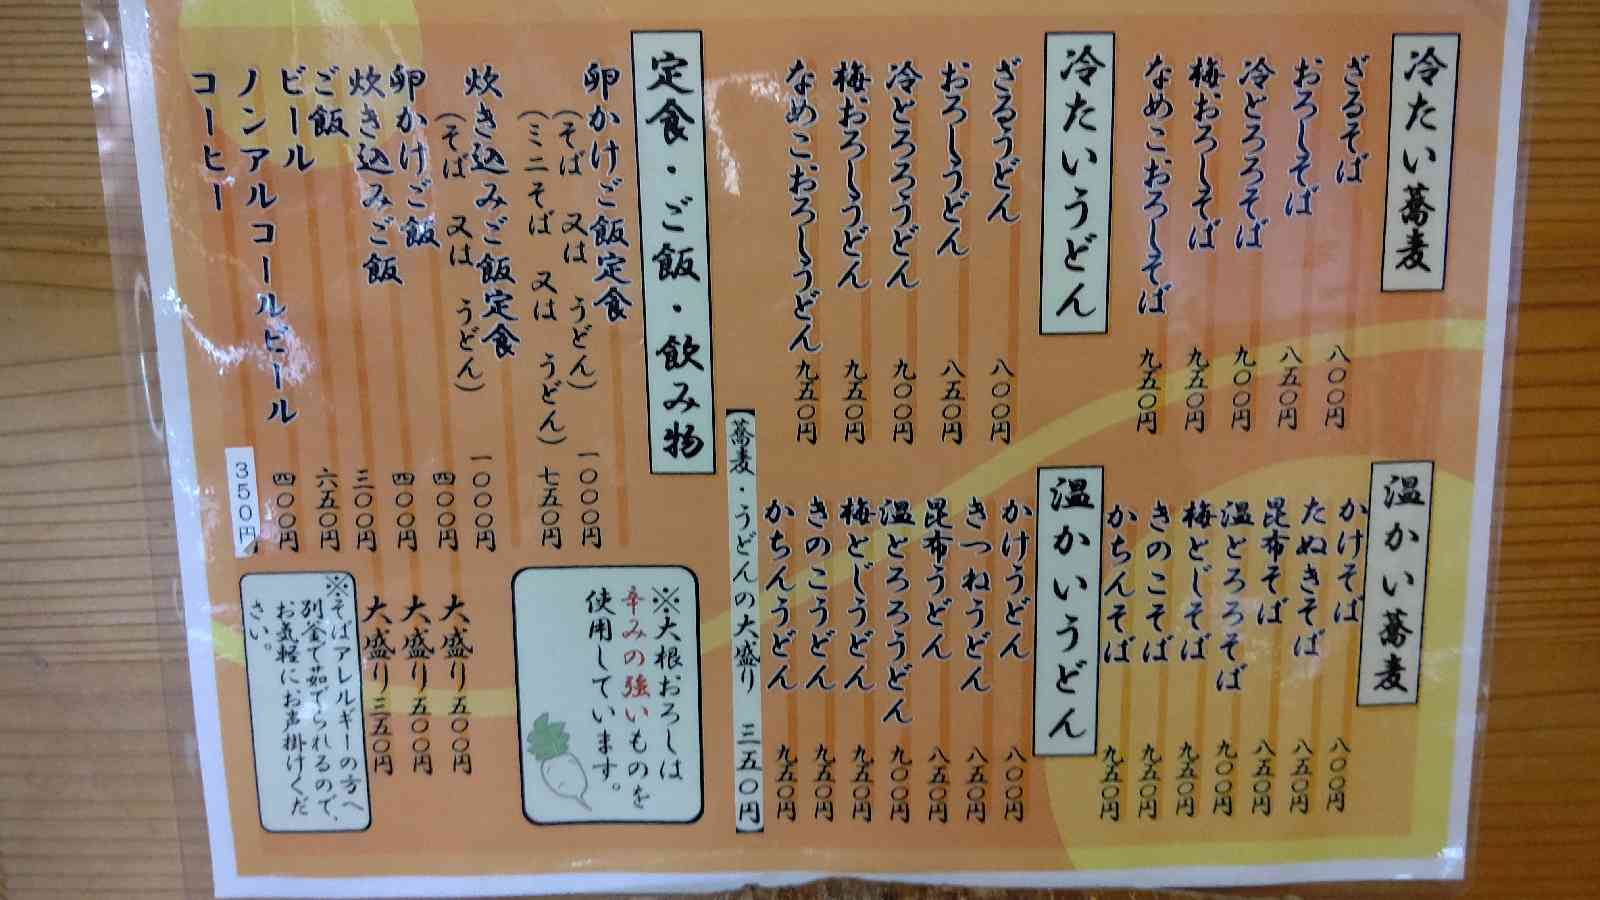 冷たい蕎麦
ざるそば 八〇〇円
おろしそば 八五〇円
冷とろろそば 九〇〇円
梅おろしそば 九五〇円
なめこおろしそば 九五〇円
温かい蕎麦
かけそば 八〇〇円
たぬきそば 八五〇円
昆布そば 八五〇円
温とろろそば 九〇〇円
梅とじそば 九五〇円
きのこそば 九五〇円
かちんそば 九五〇円
冷たいうどん
ざるうどん 八〇〇円
おろしうどん 八五〇円
冷とろろうどん 九〇〇円
梅おろしうどん 九五〇円
なめこおろしうどん 九五〇円
温かいうどん
かけうどん 八〇〇円
きつねうどん 八五〇円
昆布うどん 八五〇円
温とろろうどん 九〇〇円
梅とじうどん 九五〇円
きのこうどん 九五〇円
かちんうどん 九五〇円
【蕎麦・うどんの大盛り 三五〇円】
定食・ご飯・飲み物
卵かけご飯定食 一〇〇〇円
(そば 又は うどん)
(ミニそば 又は うどん) 七五〇円
炊き込みご飯定食 一〇〇〇円
(そば 又は うどん)
卵かけご飯 四〇〇円 大盛り 五〇〇円
炊き込みご飯 四〇〇円 大盛り 五〇〇円
ご飯 三〇〇円 大盛り 三五〇円
ビール 六五〇円
ノンアルコールビール 四〇〇円
コーヒー 350円
※大根おろしは
辛みの強いものを
使用しています。
※そばアレルギーの方へ
別釜で茹でられるので、
お気軽にお声掛けくだ
さい。